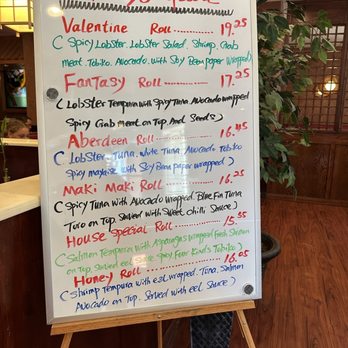 Valentine Roll ........ 19.25
( Spicy Lobster, Lobster Salad, Shrimp, Crab
meat, Tobiko, Avocado, with Soy Bean paper Wrapped )
Fantasy Roll ........ 17.25
( Lobster Tempura with Spicy Tuna Avocado wrapped
Spicy Crab meat on Top And Seeds )
Aberdeen Roll ........ 16.45
( Lobster, Tuna, White Tuna, Avocado Tobiko
Spicy mayo with Soy Bean paper wrapped )
Maki Maki Roll ........ 16.25
( Spicy Tuna with Avocado wrapped Blue Fin Tuna
Toro on Top, Served with Sweet Chilli Sauce )
House Special Roll ........ 15.55
( Salmon Tempura with Asparagus wrapped Fresh Salmon
on Top, Served eel Sauce Spicy Four Kinds Tobiko )
Honey Roll ........ 16.05
( Shrimp Tempura with eel wrapped. Tuna, Salmon
Avocado on Top. Served with eel Sauce )